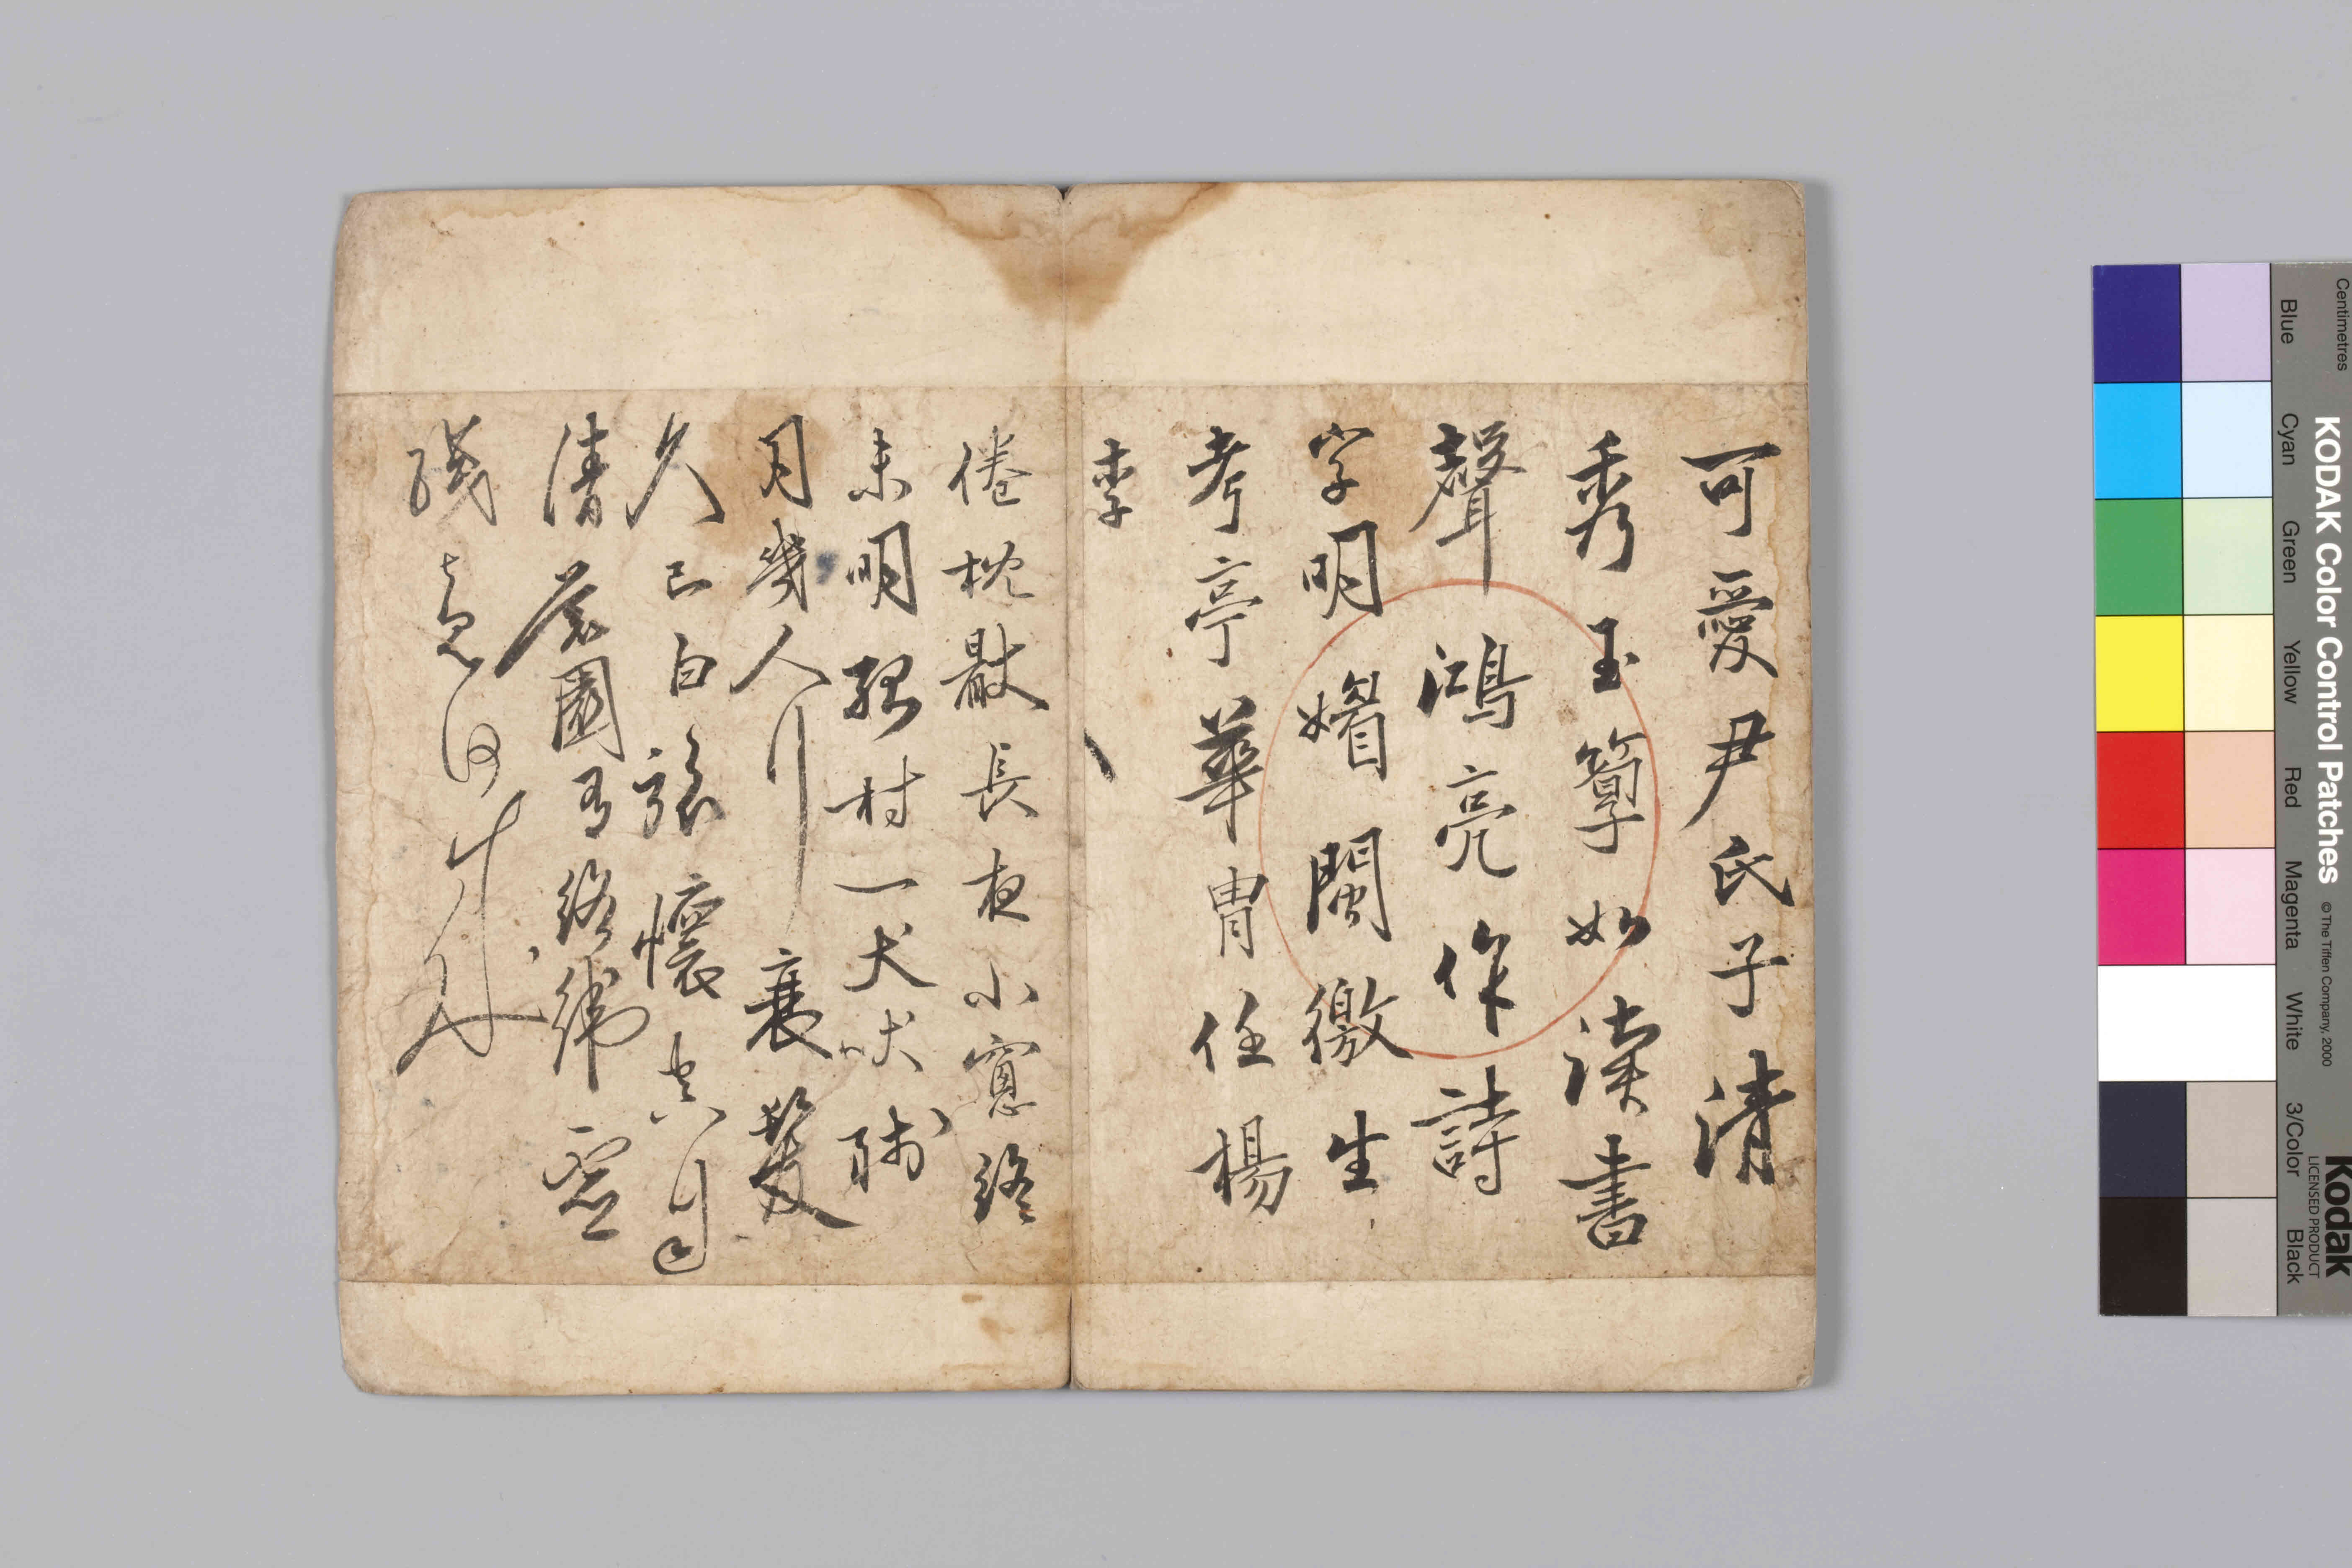 可愛尹氏子清
秀玉如讀書
聲鴻亮作詩
字明媚閩徼生
考亭華胄任楊
李
倦枕長夜小窻終
未明孤村一犬吠殘
月幾人行衰鬢
久已白旅懷空自
清荒園有絡緯虛
織竟何成
Centimetres
Blue Cyan Green Yellow Red Magenta White 3/Color Black
KODAK Color Control Patches © The Tiffen Company, 2000
Kodak
LICENSED PRODUCT